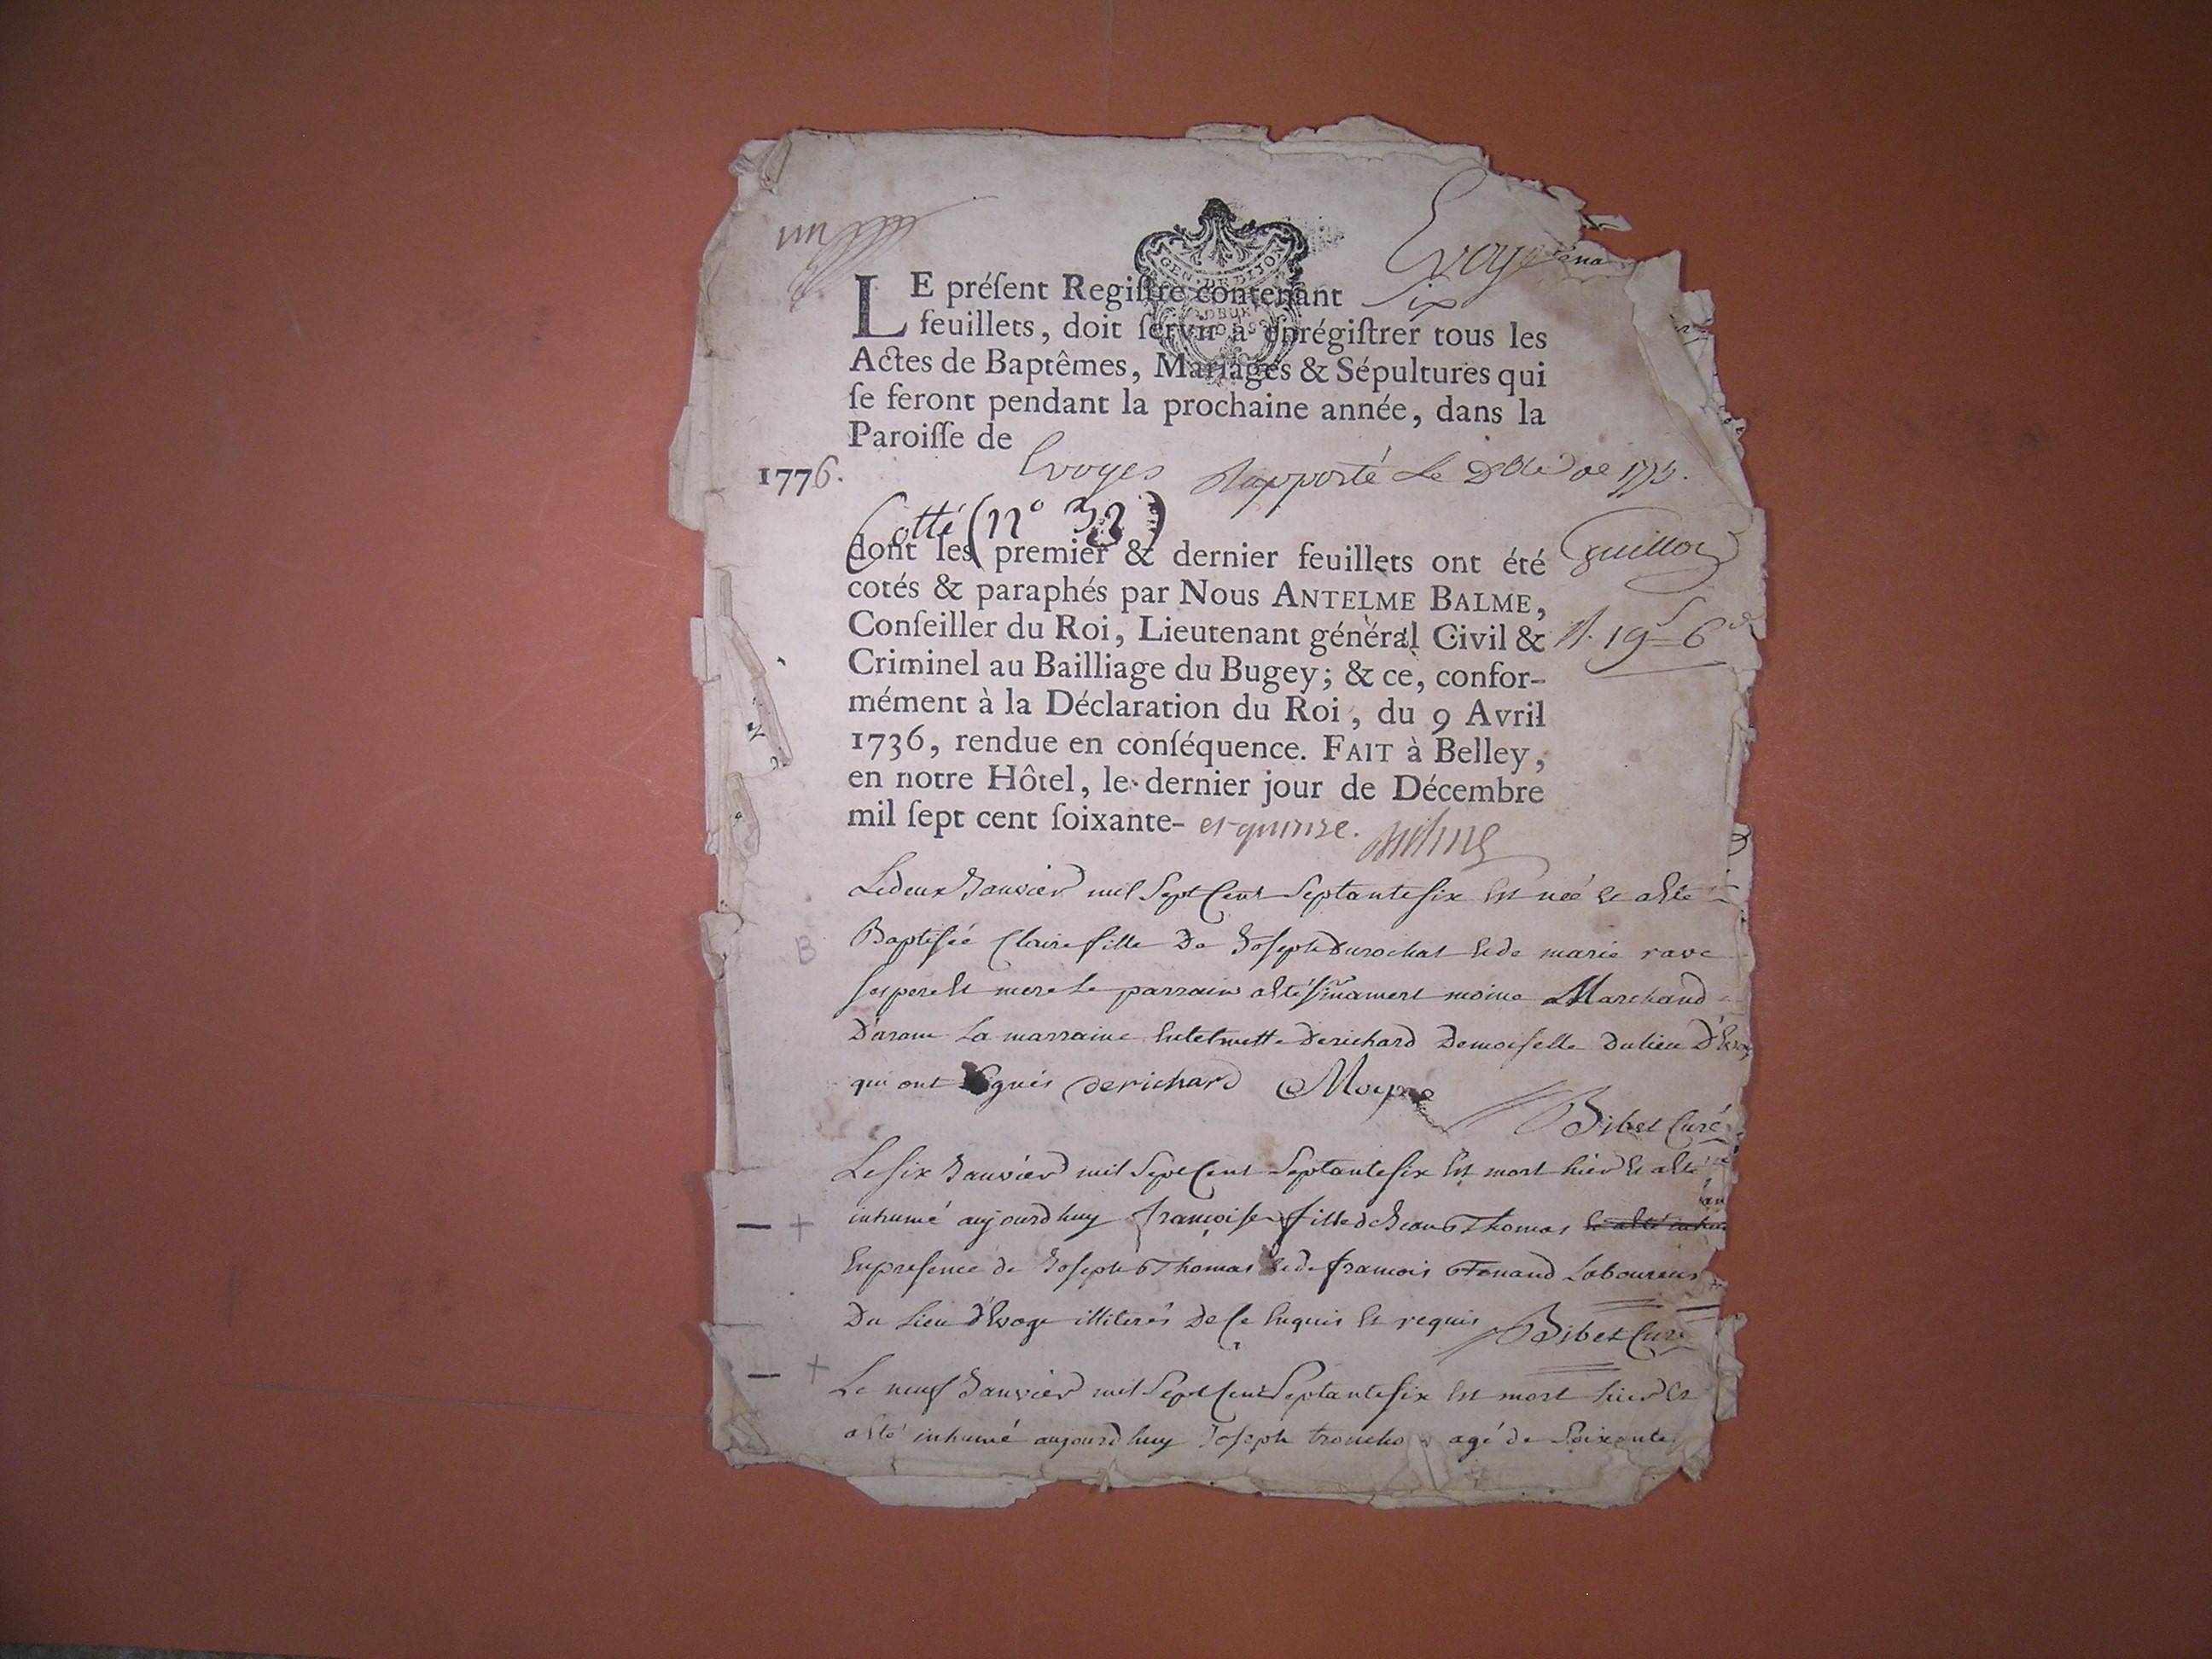 un
Evoge
GEN. DE DIJON
LE préſent Regiſtre contenant six
feuillets, doit ſervir à enrégiſtrer tous les
Actes de Baptêmes, Mariages & Sépultures qui
ſe feront pendant la prochaine année, dans la
Paroiſſe de
1776. Evoges Rapporté Le de 1775.
Cotté (n° 32)
dont les premier & dernier feuillets ont été
cotés & paraphés par Nous ANTELME BALME,
Conſeiller du Roi, Lieutenant général Civil &
Criminel au Bailliage du Bugey; & ce, confor-
mément à la Déclaration du Roi, du 9 Avril
1736, rendue en conſéquence. FAIT à Belley,
en notre Hôtel, le dernier jour de Décembre
mil ſept cent ſoixante- et quinze. Balme
Guillot
19 6
Le deux Janvier mil Sept Cent Septante six Est née Et a Esté
B Baptisée Claire fille De Joseph Durochat Et de marie rave
ses pere Et mere Le parrain a Esté moine Marchand
D'aran La marraine Derichard Demoiselle du lieu D'Evoge
qui ont signés derichard Moyne
Bibet Curé
Le six Janvier mil Sept Cent Septante six Est mort hier Et a Esté
inhumé aujourd huy françoise fille de Jean Thomas
En presence de Joseph Thomas Et de francois Tenand Laboureurs
Du Lieu d'Evoge illiterés De Ce Enquis Et requis Bibet Curé
Le neuf Janvier mil Sept Cent Septante six Est mort hier Et
a Esté inhumé aujourd huy Joseph agé de Soixante